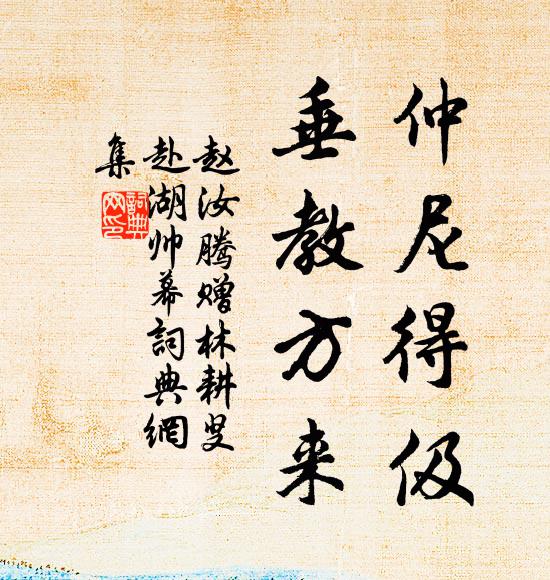 仲尼得伋
垂教方来
赵汝腾赠林耕叟
赴湖帅幕詞典網
集
詞典网印